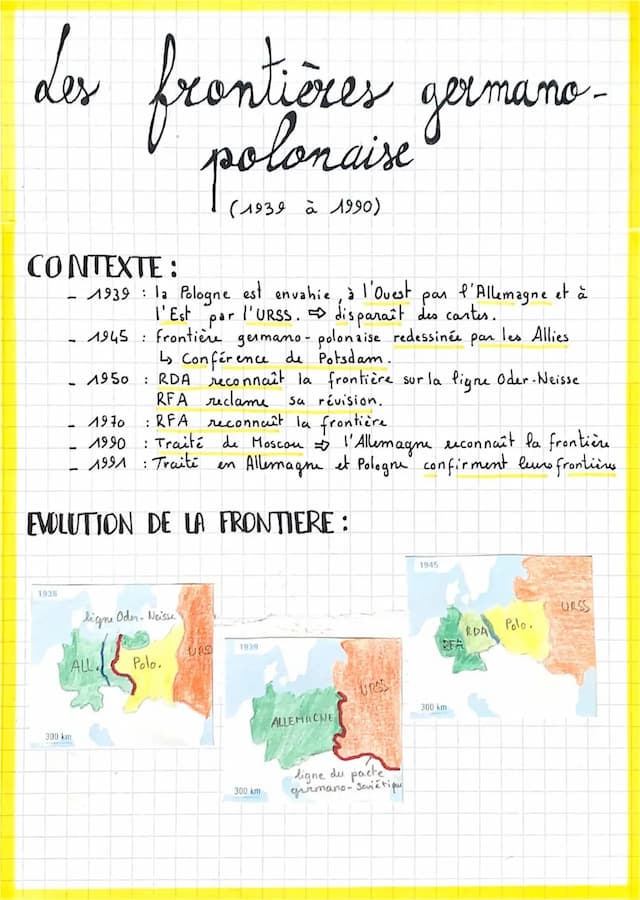 Les frontières germano-
polonaise
(1939 à 1990)
CONTEXTE :
- 1939 : la Pologne est envahie, à l'Ouest par l'Allemagne et à
l'Est par l'URSS. ⇨ disparaît des cartes.
- 1945 : frontière germano-polonaise redessinée par les Allies
↳ Conférence de Potsdam.
- 1950 : RDA reconnaît la frontière sur la ligne Oder-Neisse
RFA réclame sa révision.
- 1970 : RFA reconnaît la frontière
- 1990 : Traité de Moscou ⇨ l'Allemagne reconnaît la frontière
- 1991 : Traité en Allemagne et Pologne confirment leurs frontières
EVOLUTION DE LA FRONTIERE :
1938
ligne Oder-Neisse
ALL.
Polo.
URSS
300 km
1939
ALLEMAGNE
URSS
ligne du pacte
germano-soviétique
300 km
1945
RFA
RDA
Polo.
URSS
300 km